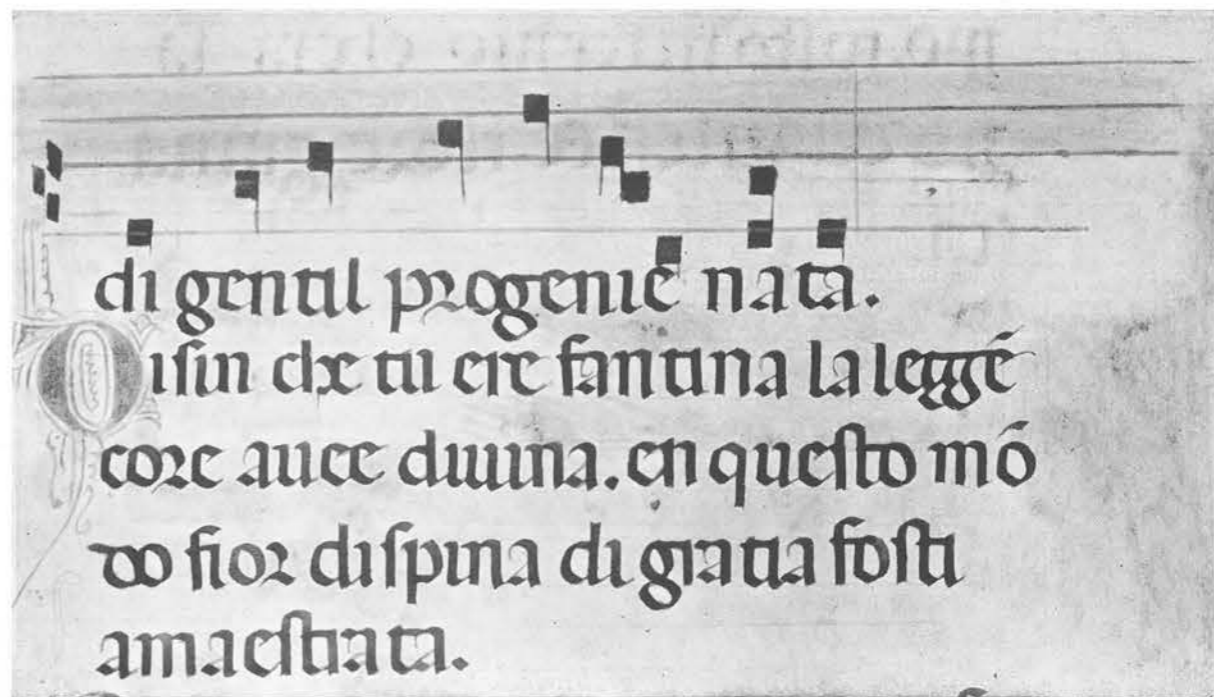 di gentil progenie nata.
Disin che tu ere fantina la legge̅
core auce diuina. en questo mo̅
do fior dispina di gratia fosti
amaestrata.